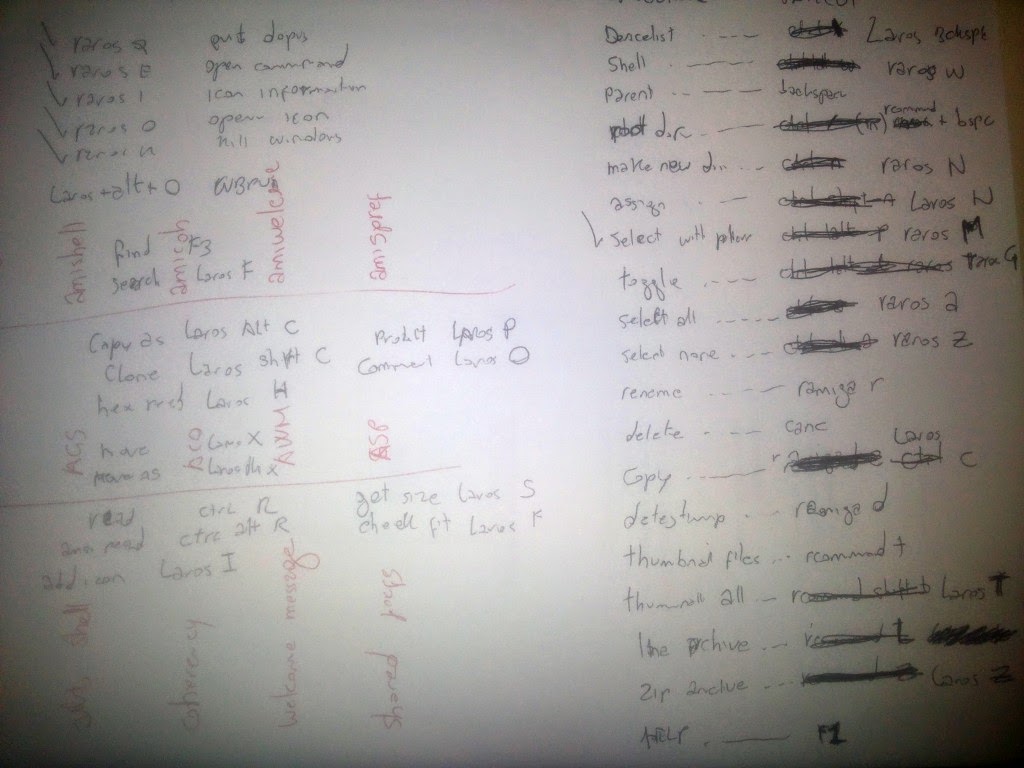 raros Q quit dopus
raros E open command
raros I icon information
raros O open icon
kill windows
Laros+alt+O
find F3
search Laros F
Copy as Laros Alt C
Clone Laros shift C
hex read Laros H
move Laros X
move as Laros Alt X
Protect Laros P
Comment Laros O
read ctrl R
ansi read ctrl alt R
add icon Laros I
get size Laros S
check fit Laros F
amishell
amicoh
amiwelcome
amispref
AGS
ACO
AWM
ASP
shell
coherency
welcome message
shared
Devicelist Laros Bckspc
Shell raros W
Parent backspace
root dir rcommand + bspc
make new dir raros N
assign Laros N
Select with pattern raros M
toggle raros G
select all raros a
select none raros Z
rename ramiga r
delete canc
Copy Laros C
datestamp ramiga d
thumbnail files rcommand t
thumbnail all Laros T
lha archive
Zip archive Laros Z
HELP F1